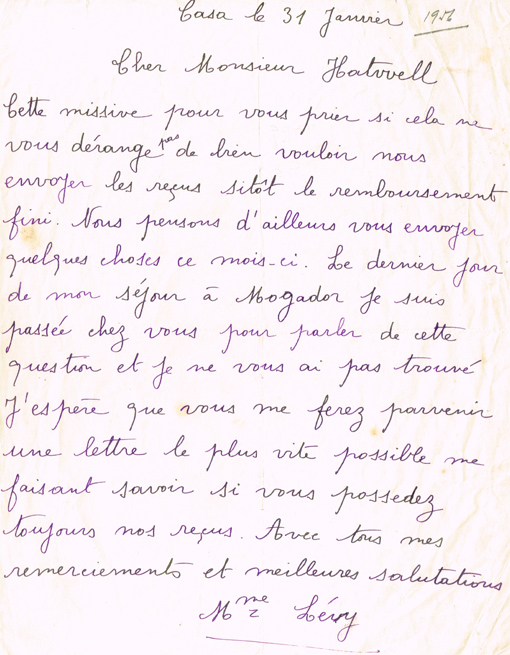 Casa le 31 Janvier 1956
Cher Monsieur Hatwell
Cette missive pour vous prier si cela ne
vous dérange pas de bien vouloir nous
envoyer les reçus sitôt le remboursement
fini. Nous pensons d'ailleurs vous envoyer
quelques choses ce mois-ci. Le dernier jour
de mon séjour à Mogador Je suis
passée chez vous pour parler de cette
question et Je ne vous ai pas trouvé
J'espère que vous me ferez parvenir
une lettre le plus vite possible me
faisant savoir si vous possedez
toujours nos reçus. Avec tous mes
remerciements et meilleures salutations
Mme Lévy